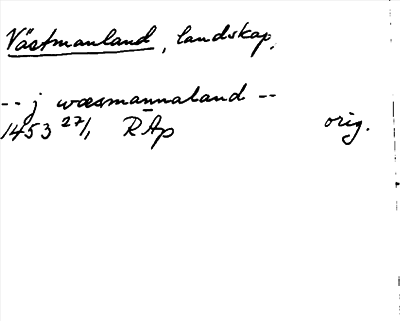 Västmanland, landskap.
-- j wæsmannaland --
1453 27/1 RAp orig.